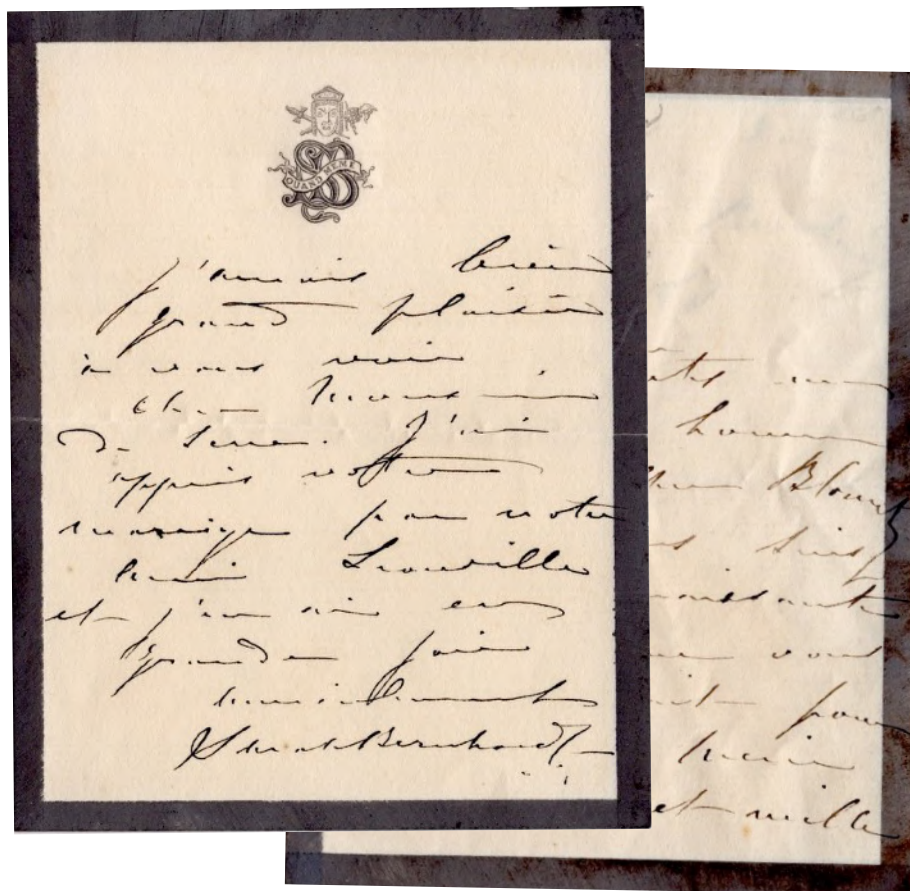 QUAND MEME
j'aurais bien
grand plaisir
à vous voir
cher Monsieur
de J'ai
appris votre
mariage par notre
ami Liouville
et j'en ai eu
grande joie
amicalement
Sarah Bernhardt
un
homme
Blount
suis
naissante
vous
pour
et mille